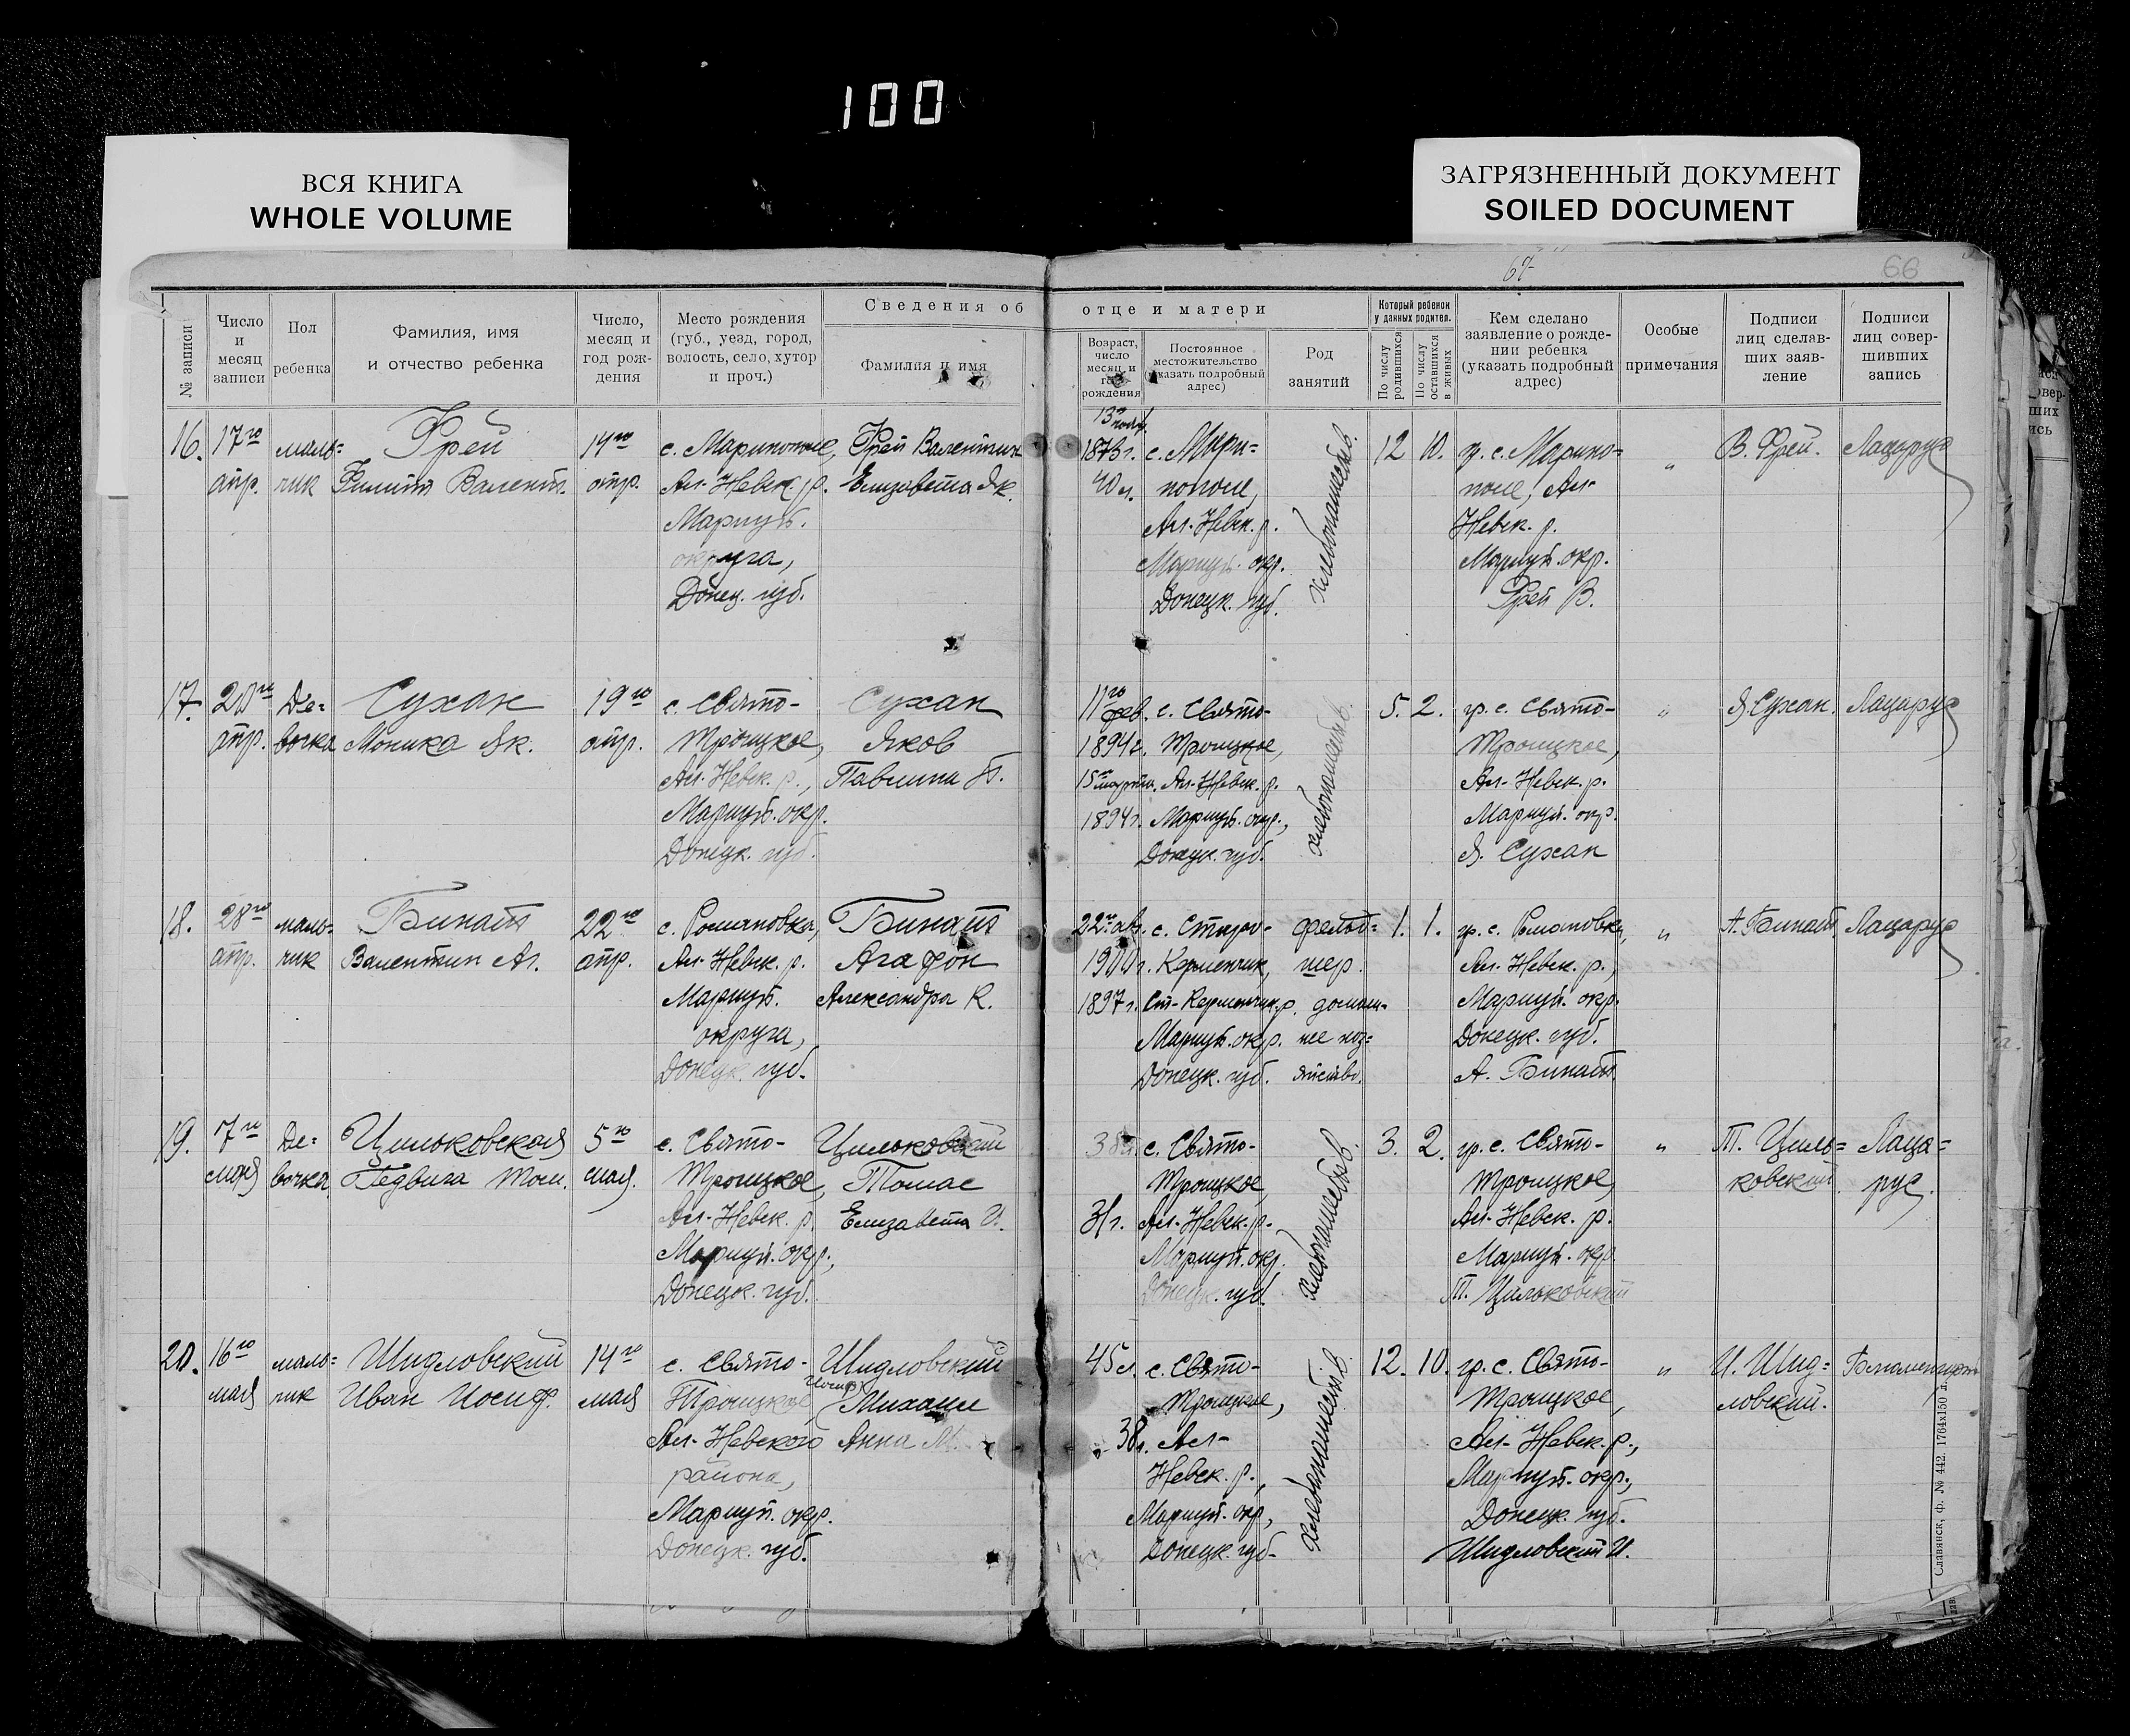 100
ВСЯ КНИГА
WHOLE VOLUME
ЗАГРЯЗНЕННЫЙ ДОКУМЕНТ
SOILED DOCUMENT
67
66
Сведения об отце и матери
№ записи
Число и месяц записи
Пол ребенка
Фамилия, имя и отчество ребенка
Число, месяц и год рождения
Место рождения (губ., уезд, город, волость, село, хутор и проч.)
Фамилия и имя
Возраст, число месяц и год рождения
Постоянное местожительство (указать подробный адрес)
Род занятий
Который ребенок у данных родител.
По числу родившихся
По числу оставшихся в живых
Кем сделано заявление о рождении ребенка (указать подробный адрес)
Особые примечания
Подписи лиц сделавших заявление
Подписи лиц совершивших запись
16.
17го
апр.
маль=
чик
Фрей
Филипп Валент.
14го
апр.
с. Маринополе,
Ал-Невск. р.
Мариуп.
округа,
Донец. губ.
Фрей Валентин
Елизавета Як.
13го
1873 г.
40 л.
с. Мари-
нополе,
Ал-Невск. р.
Мариуп. окр.
Донецк. губ.
хлебопашеств.
12
10.
гр. с. Марино-
поле, Ал-
Невск. р.
Мариуп. окр.
Фрей В.
"
В. Фрей.
Лацарус
17.
20го
апр.
Де-
вочка
Сухан
Моника Як.
19го
апр.
с. Свято-
Троицкое,
Ал-Невск. р.,
Мариуп. окр.
Донецк. губ.
Сухан
Яков
Павлина П.
11го
фев.
1894 г.
15го марта.
1894 г.
с. Свято-
Троицкое,
Ал-Невск. р.
Мариуп. окр.,
Донецк. губ.
хлебопашеств.
5.
2.
гр. с. Свято-
Троицкое,
Ал-Невск. р.
Мариуп. окр.
Я. Сухан
"
Я. Сухан.
Лацарус
18.
28го
апр.
маль-
чик
Бинат
Валентин Аг.
22го
апр.
с. Романовка,
Ал-Невск. р.
Мариуп.
округа,
Донецк. губ.
Бинат
Агафон
Александра К.
22го ав.
1900 г.
1897 г.
с. Старо-
Керменчик,
Ст-Керменчик. р.
Мариуп. окр.
Донецк. губ.
фельд=
шер.
домаш-
нее хоз=
яйство.
1.
1.
гр. с. Романовка,
Ал-Невск. р.,
Мариуп. окр.
Донецк. губ.
А. Бинат.
"
А. Бинат
Лацарус
19.
7го
мая
Де=
вочка
Цильковская
Гедвига Том.
5го
мая.
с. Свято-
Троицкое,
Ал-Невск. р.
Мариуп. окр.,
Донецк. губ.
Цильковский
Томас
Елизавета И.
38 л.
31 г.
с. Свято-
Троицкое,
Ал-Невск. р.
Мариуп. окр.
Донецк. губ.
хлебопашеств.
3.
2.
гр. с. Свято-
Троицкое,
Ал-Невск. р.
Мариуп. окр.
Т. Цильковский
"
Т. Циль=
ковский.
Лаца=
рус.
20.
16го
мая
маль=
чик
Шидловский
Иван Иосиф.
14го
мая
с. Свято-
Троицкое,
Ал-Невского
района,
Мариуп. окр.
Донецк. губ.
Шидловский
Иосиф
Михаил
Анна М.
45 л.
38 л.
с. Свято-
Троицкое,
Ал-
Невск. р.,
Мариуп. окр,
Донецк. губ.
хлебопашеств.
12.
10.
гр. с. Свято-
Троицкое,
Ал-Невск. р.,
Мариуп. окр.,
Донецк. губ.
Шидловский И.
"
И. Шид=
ловский.
Славянск, ф. № 442. 1764х150 л.